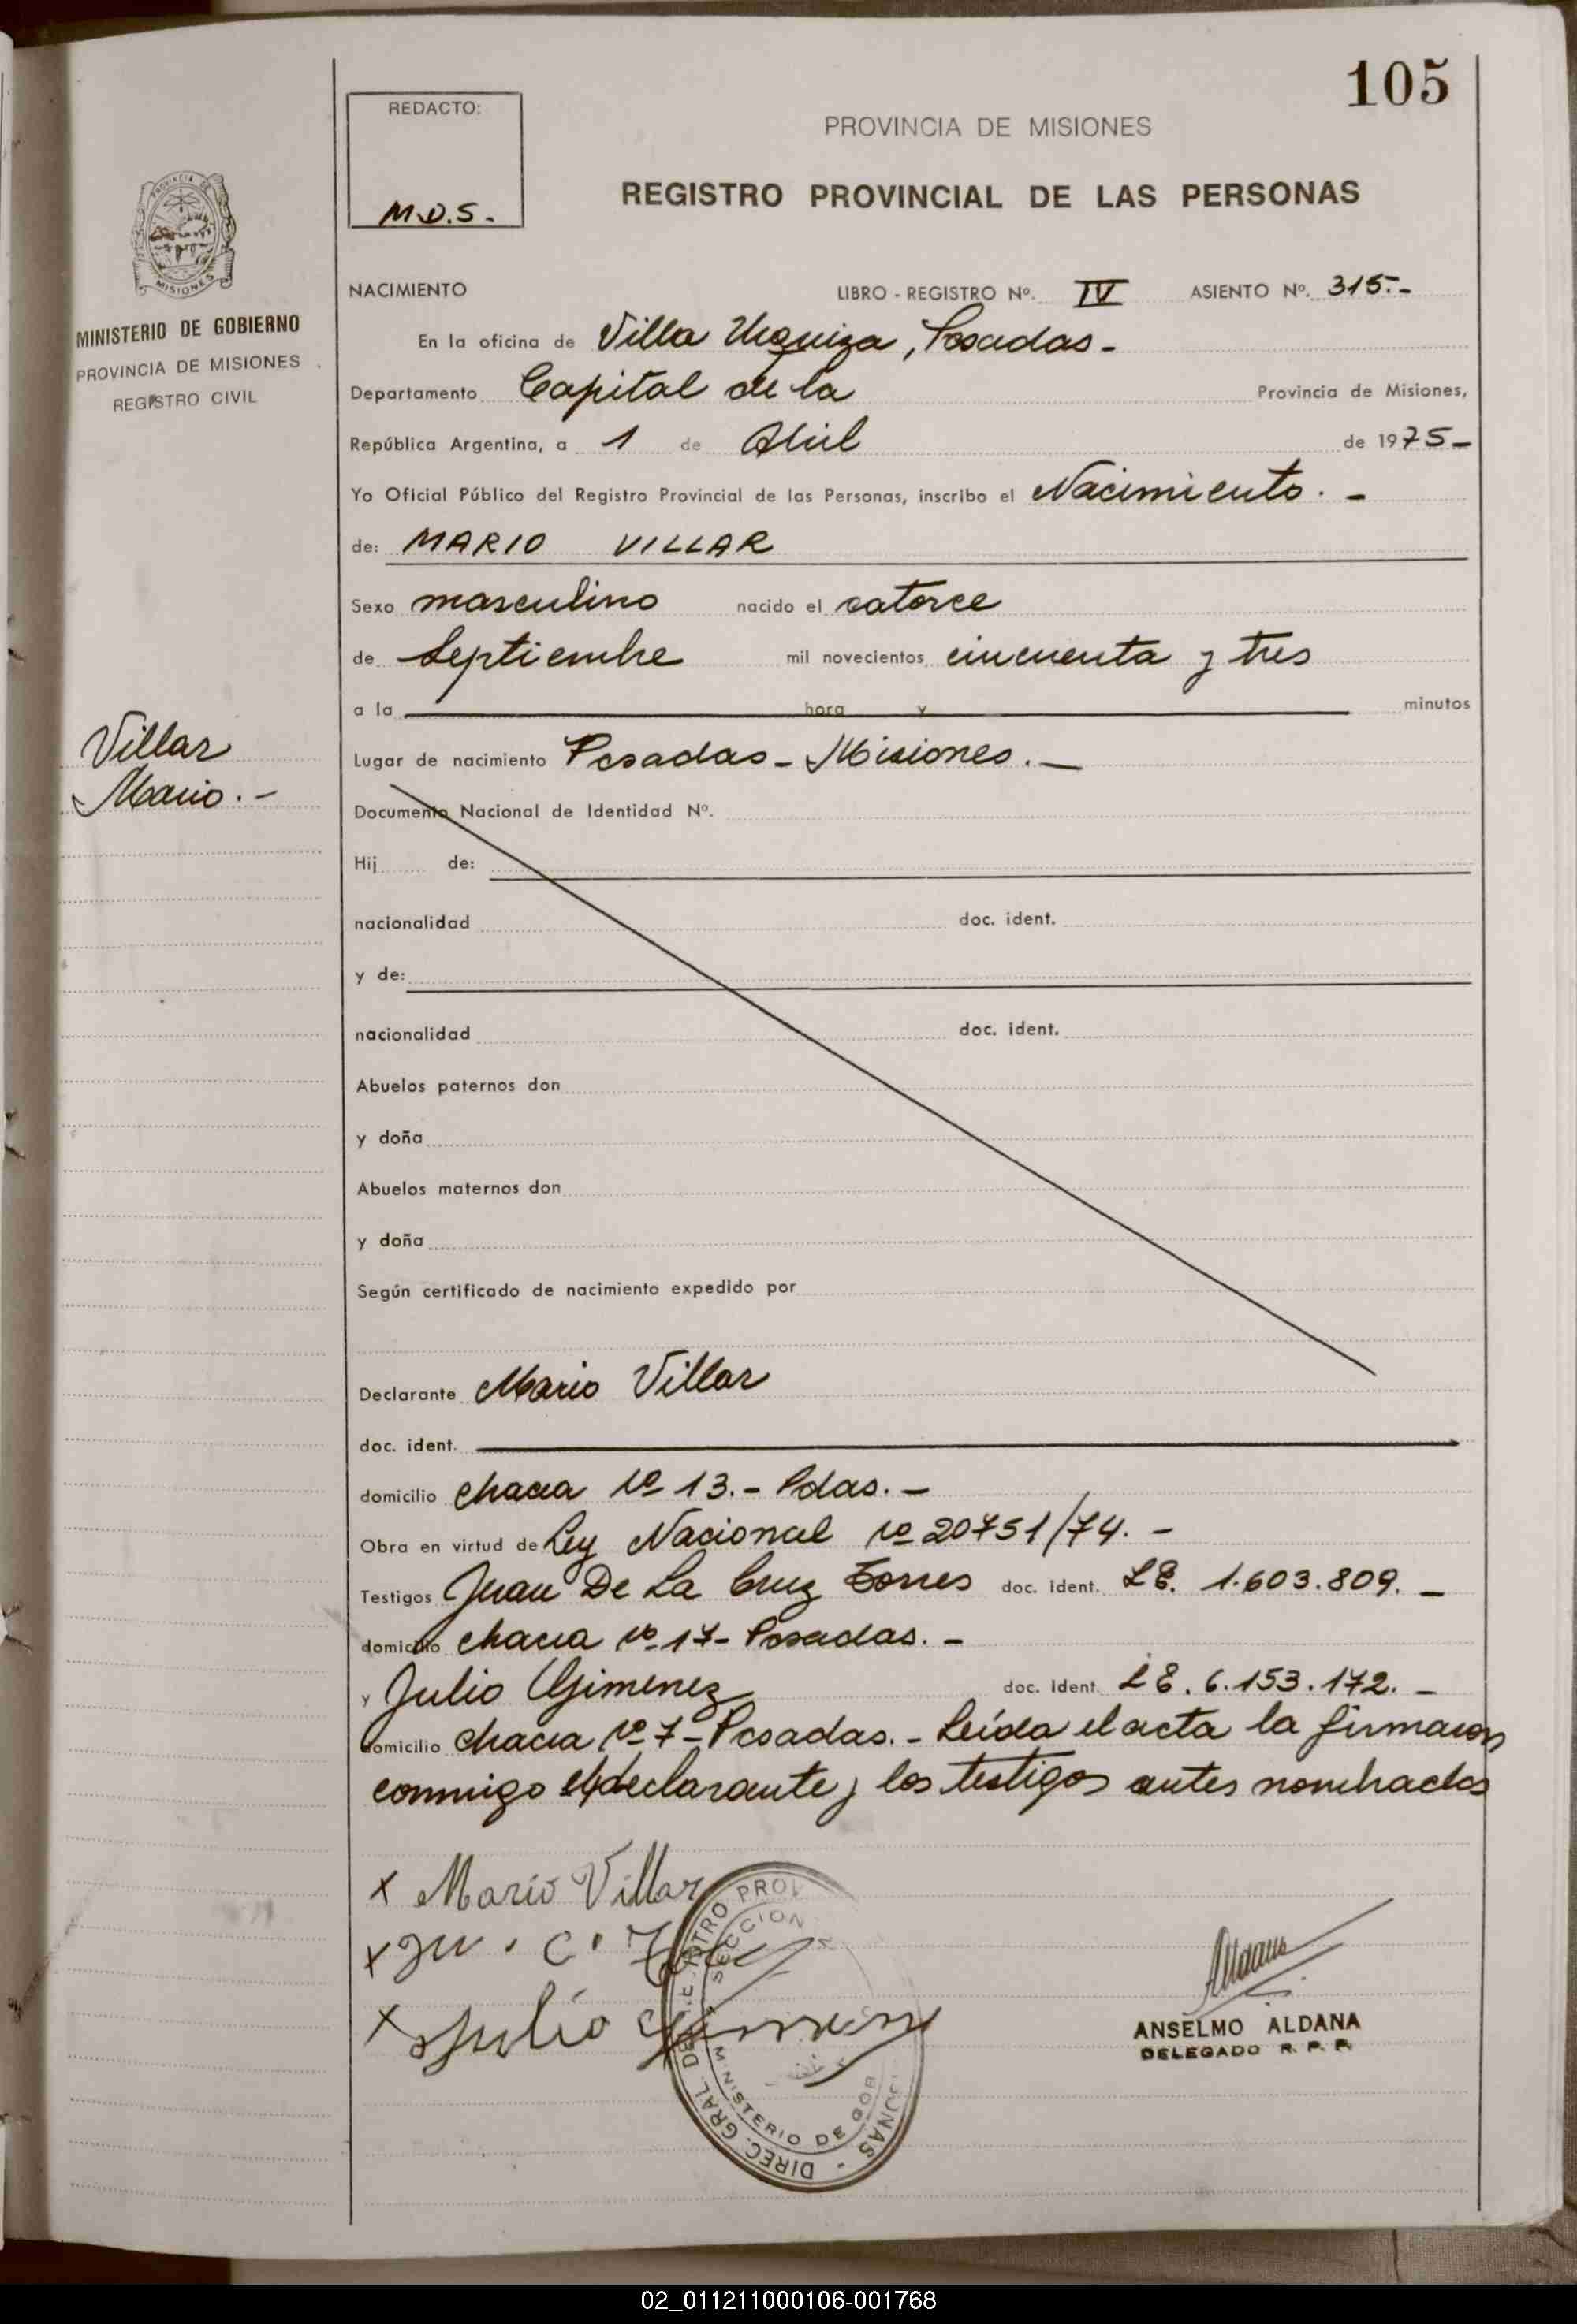 105
REDACTO:
M.D.S.-
PROVINCIA DE MISIONES
REGISTRO PROVINCIAL DE LAS PERSONAS
PROVINCIA DE
MISIONES
MINISTERIO DE GOBIERNO
PROVINCIA DE MISIONES
REGISTRO CIVIL
Villar
Mario.-
NACIMIENTO LIBRO - REGISTRO Nº. IV ASIENTO Nº. 315.-
En la oficina de Villa Urquiza, Posadas-
Departamento Capital de la Provincia de Misiones,
República Argentina, a 1 de Abril de 1975-
Yo Oficial Público del Registro Provincial de las Personas, inscribo el Nacimiento.-
de: MARIO VILLAR
Sexo masculino nacido el catorce
de Septiembre mil novecientos cincuenta y tres
a la hora y minutos
Lugar de nacimiento Posadas-Misiones.-
Documento Nacional de Identidad Nº.
Hij de:
nacionalidad doc. ident.
y de:
nacionalidad doc. ident.
Abuelos paternos don
y doña
Abuelos maternos don
y doña
Según certificado de nacimiento expedido por
Declarante Mario Villar
doc. ident.
domicilio chacra Nº 13.- Pdas.-
Obra en virtud de Ley Nacional Nº 20751/74.-
Testigos Juan De La Cruz Torres doc. ident. L.E. 1.603.809.-
domicilio chacra Nº 17- Posadas.-
y Julio Gimenez doc. ident. L.E. 6.153.172.-
domicilio chacra Nº 7-Posadas.- Leída el acta la firmaron
conmigo el declarante y los testigos antes nombrados
x Mario Villar
x Ju. C.
x Julio
DIREC. GRAL. DEL PROV
SECCION
MINISTERIO DE GOB
Aldana
ANSELMO ALDANA
DELEGADO R. P. P.
02_011211000106-001768